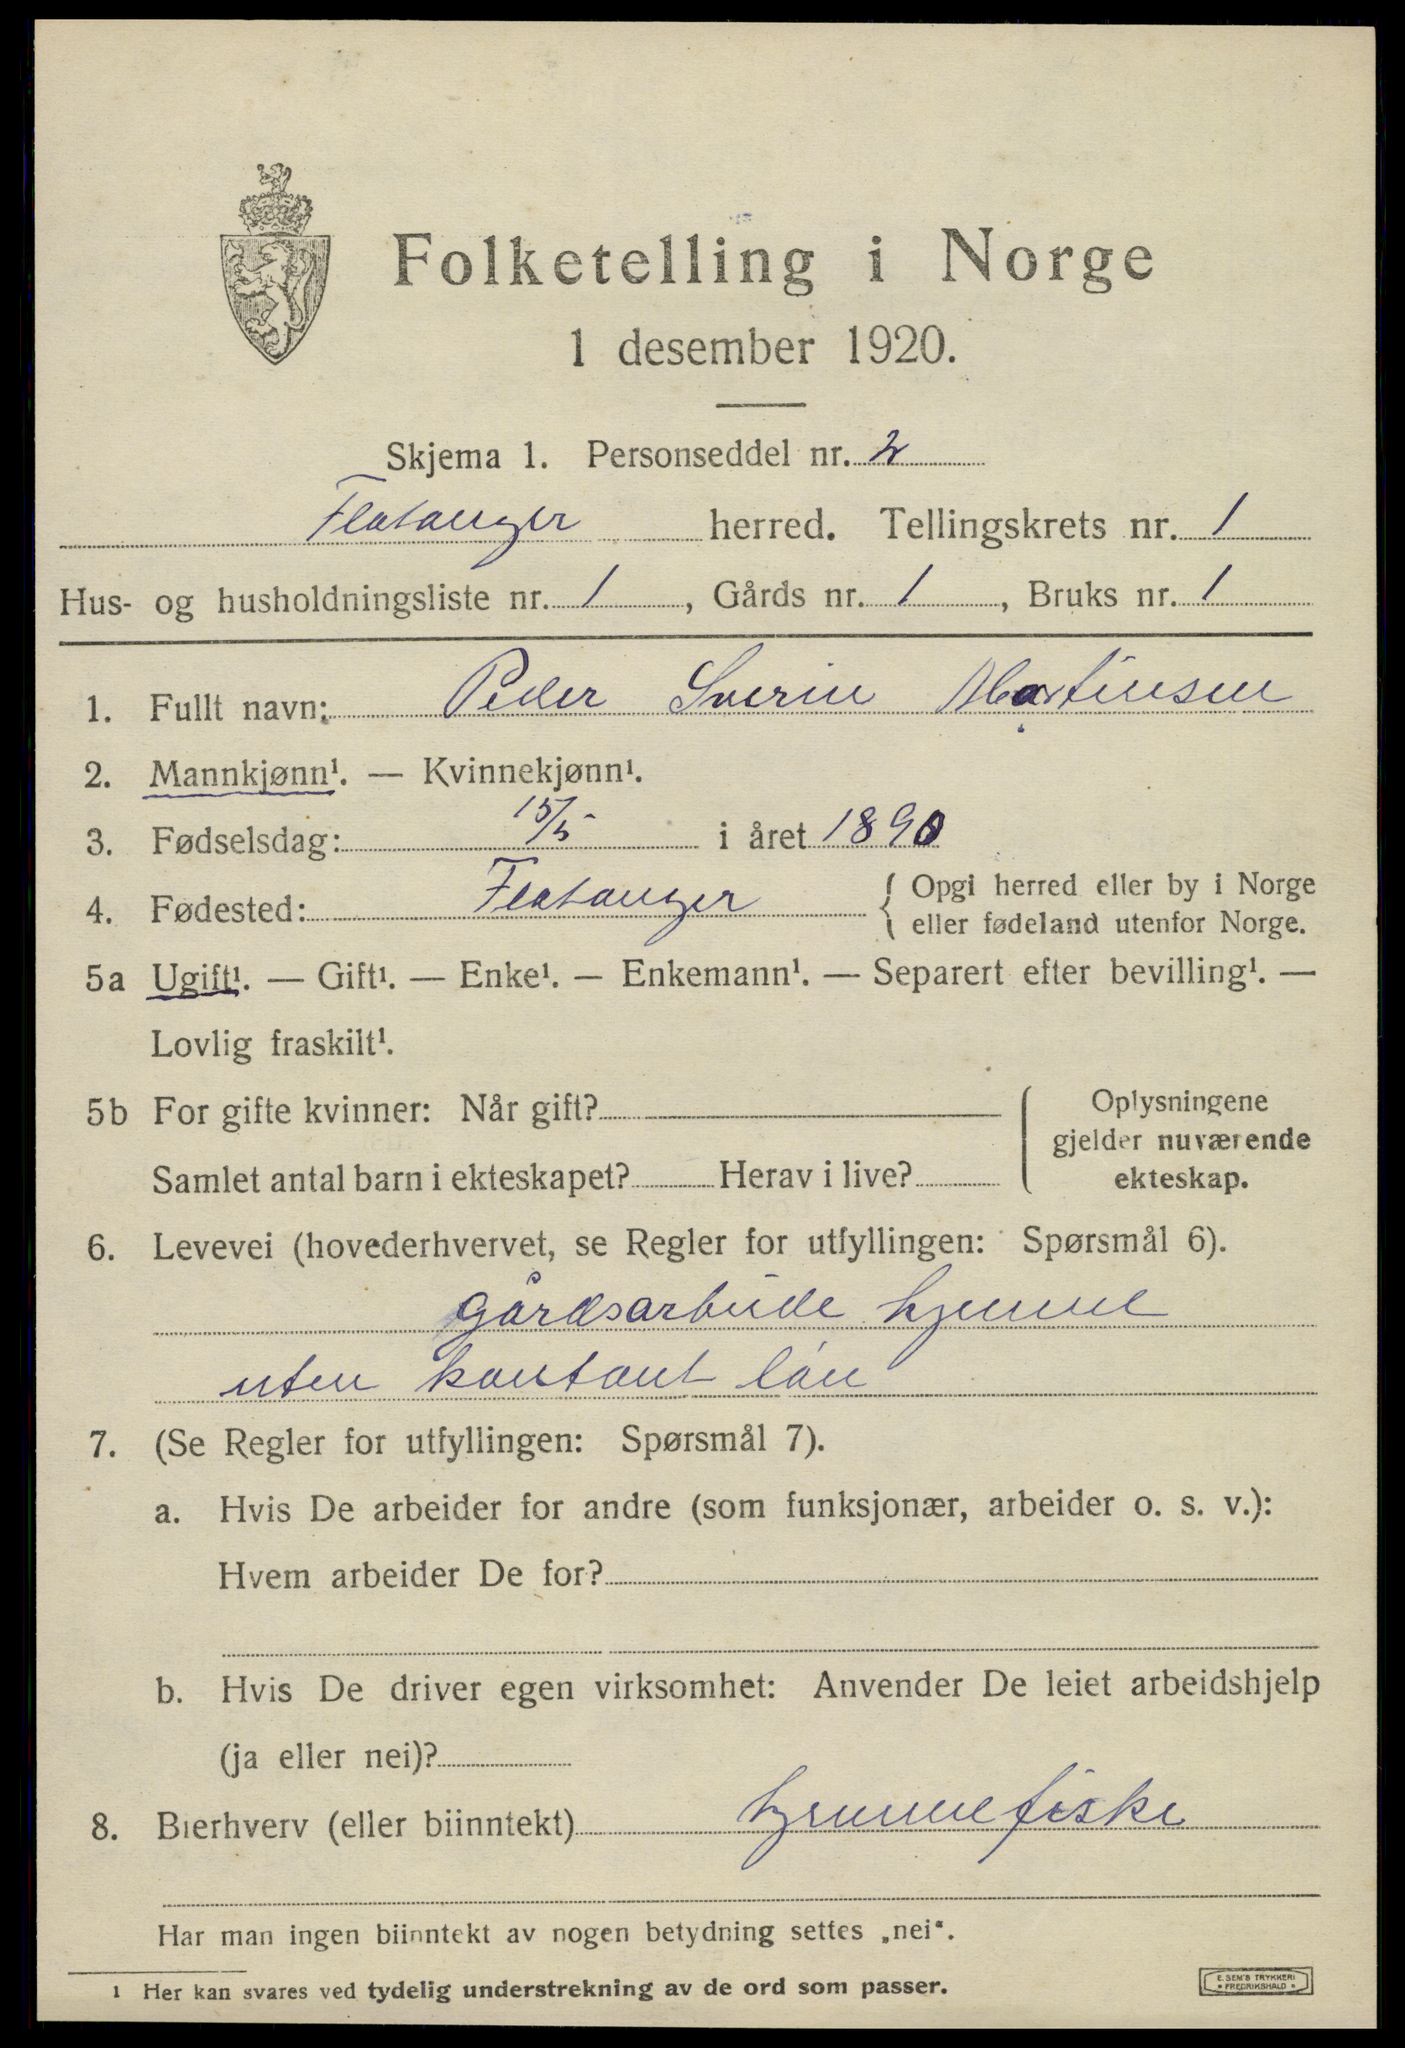 Folketelling i Norge
1 desember 1920.
Skjema 1. Personseddel nr. 2
Flatanger herred. Tellingskrets nr. 1
Hus- og husholdningsliste nr. 1, Gårds nr. 1, Bruks nr. 1
1. Fullt navn: Peder Sverin Martinsen
2. Mannkjønn¹. — Kvinnekjønn¹.
3. Fødselsdag: 15/5 i året 1890
4. Fødested: Flatanger { Opgi herred eller by i Norge
eller fødeland utenfor Norge.
5a Ugift¹. — Gift¹. — Enke¹. — Enkemann¹. — Separert efter bevilling¹. —
Lovlig fraskilt¹.
5b For gifte kvinner: Når gift?
Samlet antal barn i ekteskapet? Herav i live?
Oplysningene
gjelder nuværende
ekteskap.
6. Levevei (hovederhvervet, se Regler for utfyllingen: Spørsmål 6).
gårdsarbeide hjemme
uten kontant lön
7. (Se Regler for utfyllingen: Spørsmål 7).
a. Hvis De arbeider for andre (som funksjonær, arbeider o. s. v.):
Hvem arbeider De for?
b. Hvis De driver egen virksomhet: Anvender De leiet arbeidshjelp
(ja eller nei)?
8. Bierhverv (eller biinntekt) hjemmefiske
Har man ingen biinntekt av nogen betydning settes „nei“.
1 Her kan svares ved tydelig understrekning av de ord som passer.
E. SEM'S TRYKKERI
• FREDRIKSHALD •